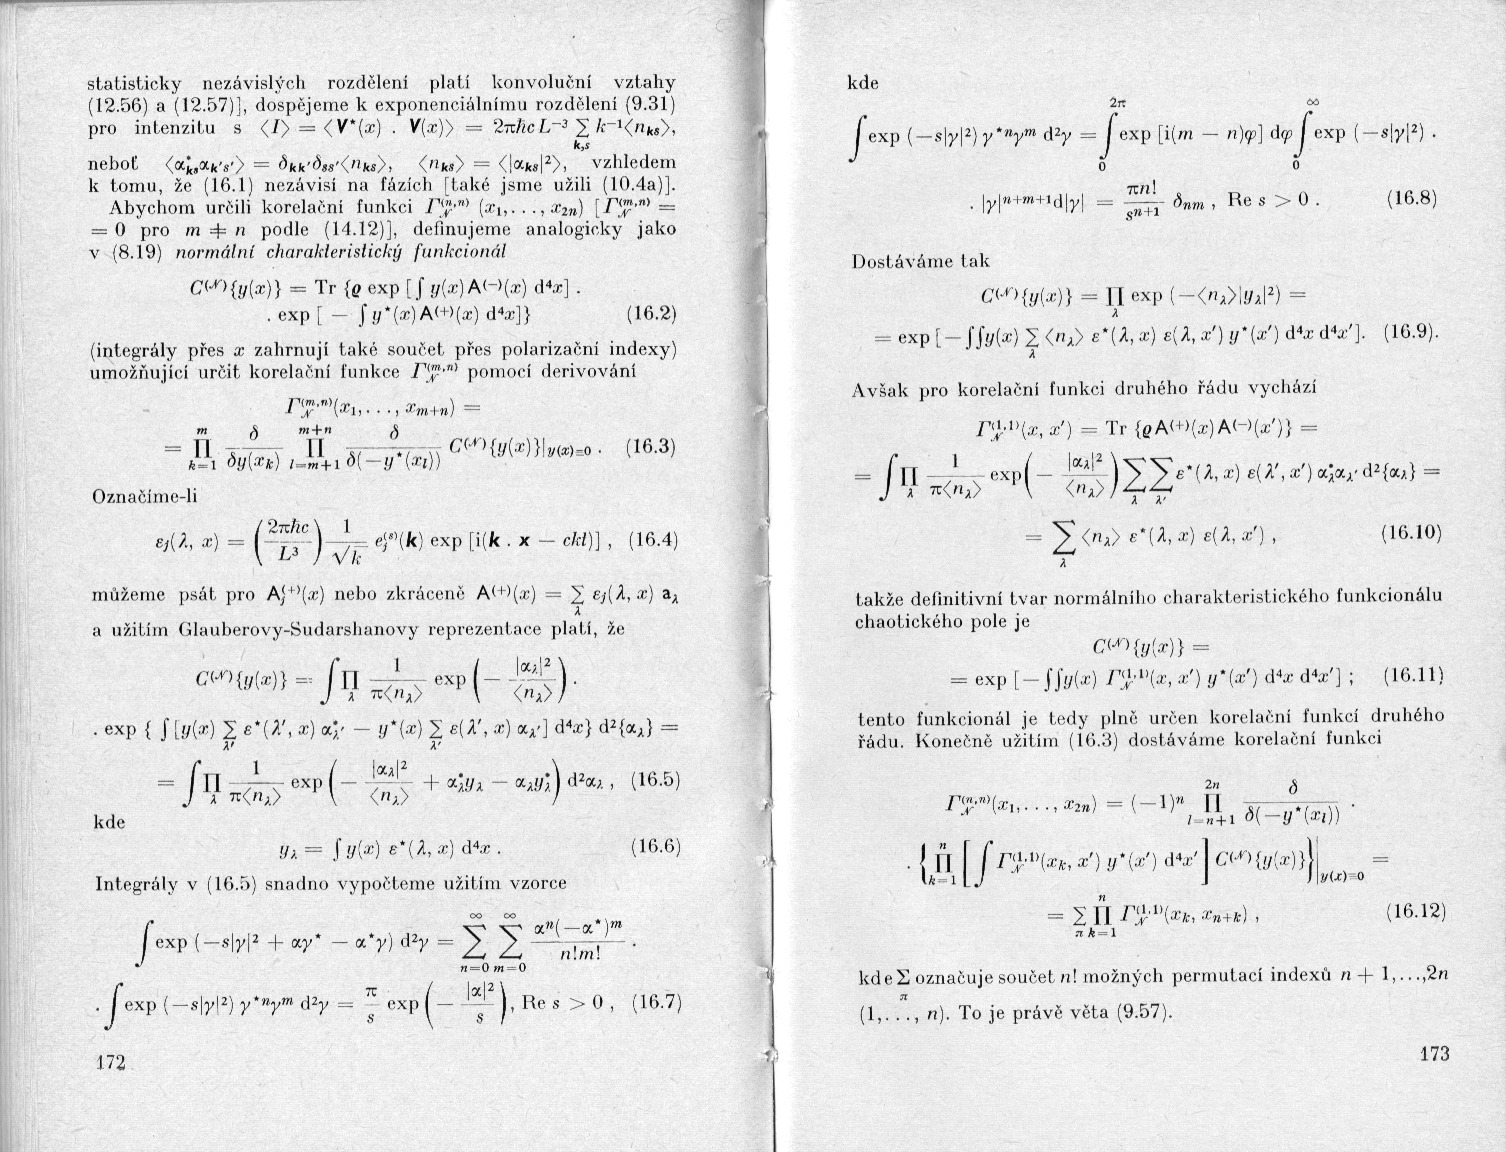 statisticky nezávislých rozdělení platí konvoluční vztahy
(12.56) a (12.57)], dospějeme k exponenciálnímu rozdělení (9.31)
pro intenzitu s ⟨I⟩ = ⟨V*(x) . V(x)⟩ = 2πħcL⁻³ ∑ k⁻¹⟨n_ks⟩,
k,s
neboť ⟨α*_ks α_k's'⟩ = δ_kk' δ_ss' ⟨n_ks⟩, ⟨n_ks⟩ = ⟨|α_ks|²⟩, vzhledem
k tomu, že (16.1) nezávisí na fázích [také jsme užili (10.4a)].
Abychom určili korelační funkci Γ_𝒩^(n,n) (x₁,. . ., x₂ₙ) [Γ_𝒩^(m,n) =
= 0 pro m ≠ n podle (14.12)], definujeme analogicky jako
v (8.19) normální charakteristický funkcionál
C^(𝒩){y(x)} = Tr {ϱ exp [∫ y(x) A^(−)(x) d⁴x] .
. exp [ − ∫ y*(x) A^(+)(x) d⁴x]} (16.2)
(integrály přes x zahrnují také součet přes polarizační indexy)
umožňující určit korelační funkce Γ_𝒩^(m,n) pomocí derivování
Γ_𝒩^(m,n)(x₁,. . ., x_m+n) =
= ∏_{k=1}^{m} δ/δy(x_k) ∏_{l=m+1}^{m+n} δ/δ(−y*(x_l)) C^(𝒩){y(x)}|_{y(x)=0} . (16.3)
Označíme-li
ε_j(λ, x) = (2πħc/L³) 1/√k e_j^(s)(k) exp [i(k . x − ckt)] , (16.4)
můžeme psát pro A_j^(+)(x) nebo zkráceně A^(+)(x) = ∑_λ ε_j(λ, x) a_λ
a užitím Glauberovy-Sudarshanovy reprezentace platí, že
C^(𝒩){y(x)} = ∫ ∏_λ 1/π⟨n_λ⟩ exp (− |α_λ|²/⟨n_λ⟩) .
. exp { ∫ [y(x) ∑_λ' ε*(λ', x) α*_λ' − y*(x) ∑_λ' ε(λ', x) α_λ'] d⁴x} d²{α_λ} =
= ∫ ∏_λ 1/π⟨n_λ⟩ exp (− |α_λ|²/⟨n_λ⟩ + α*_λ y_λ − α_λ y*_λ) d²α_λ , (16.5)
kde
y_λ = ∫ y(x) ε*(λ, x) d⁴x . (16.6)
Integrály v (16.5) snadno vypočteme užitím vzorce
∫ exp (−s|γ|² + αγ* − α*γ) d²γ = ∑_{n=0}^{∞} ∑_{m=0}^{∞} αⁿ(−α*)ᵐ/n!m! .
. ∫ exp (−s|γ|²) γ*ⁿγᵐ d²γ = π/s exp (− |α|²/s), Re s > 0 , (16.7)
172
kde
∫ exp (−s|γ|²) γ*ⁿγᵐ d²γ = ∫_0^{2π} exp [i(m − n)φ] dφ ∫_0^∞ exp (−s|γ|²) .
. |γ|ⁿ⁺ᵐ⁺¹d|γ| = πn!/sⁿ⁺¹ δ_nm , Re s > 0 . (16.8)
Dostáváme tak
C^(𝒩){y(x)} = ∏_λ exp (−⟨n_λ⟩|y_λ|²) =
= exp [−∫∫y(x) ∑_λ ⟨n_λ⟩ ε*(λ, x) ε(λ, x') y*(x') d⁴x d⁴x']. (16.9).
Avšak pro korelační funkci druhého řádu vychází
Γ_𝒩^(1,1)(x, x') = Tr {ϱA^(+)(x) A^(−)(x')} =
= ∫ ∏_λ 1/π⟨n_λ⟩ exp(− |α_λ|²/⟨n_λ⟩) ∑_λ ∑_λ' ε*(λ, x) ε(λ', x') α*_λ α_λ' d²{α_λ} =
= ∑_λ ⟨n_λ⟩ ε*(λ, x) ε(λ, x') , (16.10)
takže definitivní tvar normálního charakteristického funkcionálu
chaotického pole je
C^(𝒩){y(x)} =
= exp [−∫∫y(x) Γ_𝒩^(1,1)(x, x') y*(x') d⁴x d⁴x'] ; (16.11)
tento funkcionál je tedy plně určen korelační funkcí druhého
řádu. Konečně užitím (16.3) dostáváme korelační funkci
Γ_𝒩^(n,n)(x₁,. . ., x₂ₙ) = (−1)ⁿ ∏_{l=n+1}^{2n} δ/δ(−y*(x_l)) .
. {∏_{k=1}^{n} [∫ Γ_𝒩^(1,1)(x_k, x') y*(x') d⁴x'] C^(𝒩){y(x)}}|_{y(x)=0} =
= ∑_π ∏_{k=1}^{n} Γ_𝒩^(1,1)(x_k, x_n+k) , (16.12)
kde ∑_π označuje součet n! možných permutací indexů n + 1,. . .,2n
(1,. . ., n). To je právě věta (9.57).
173